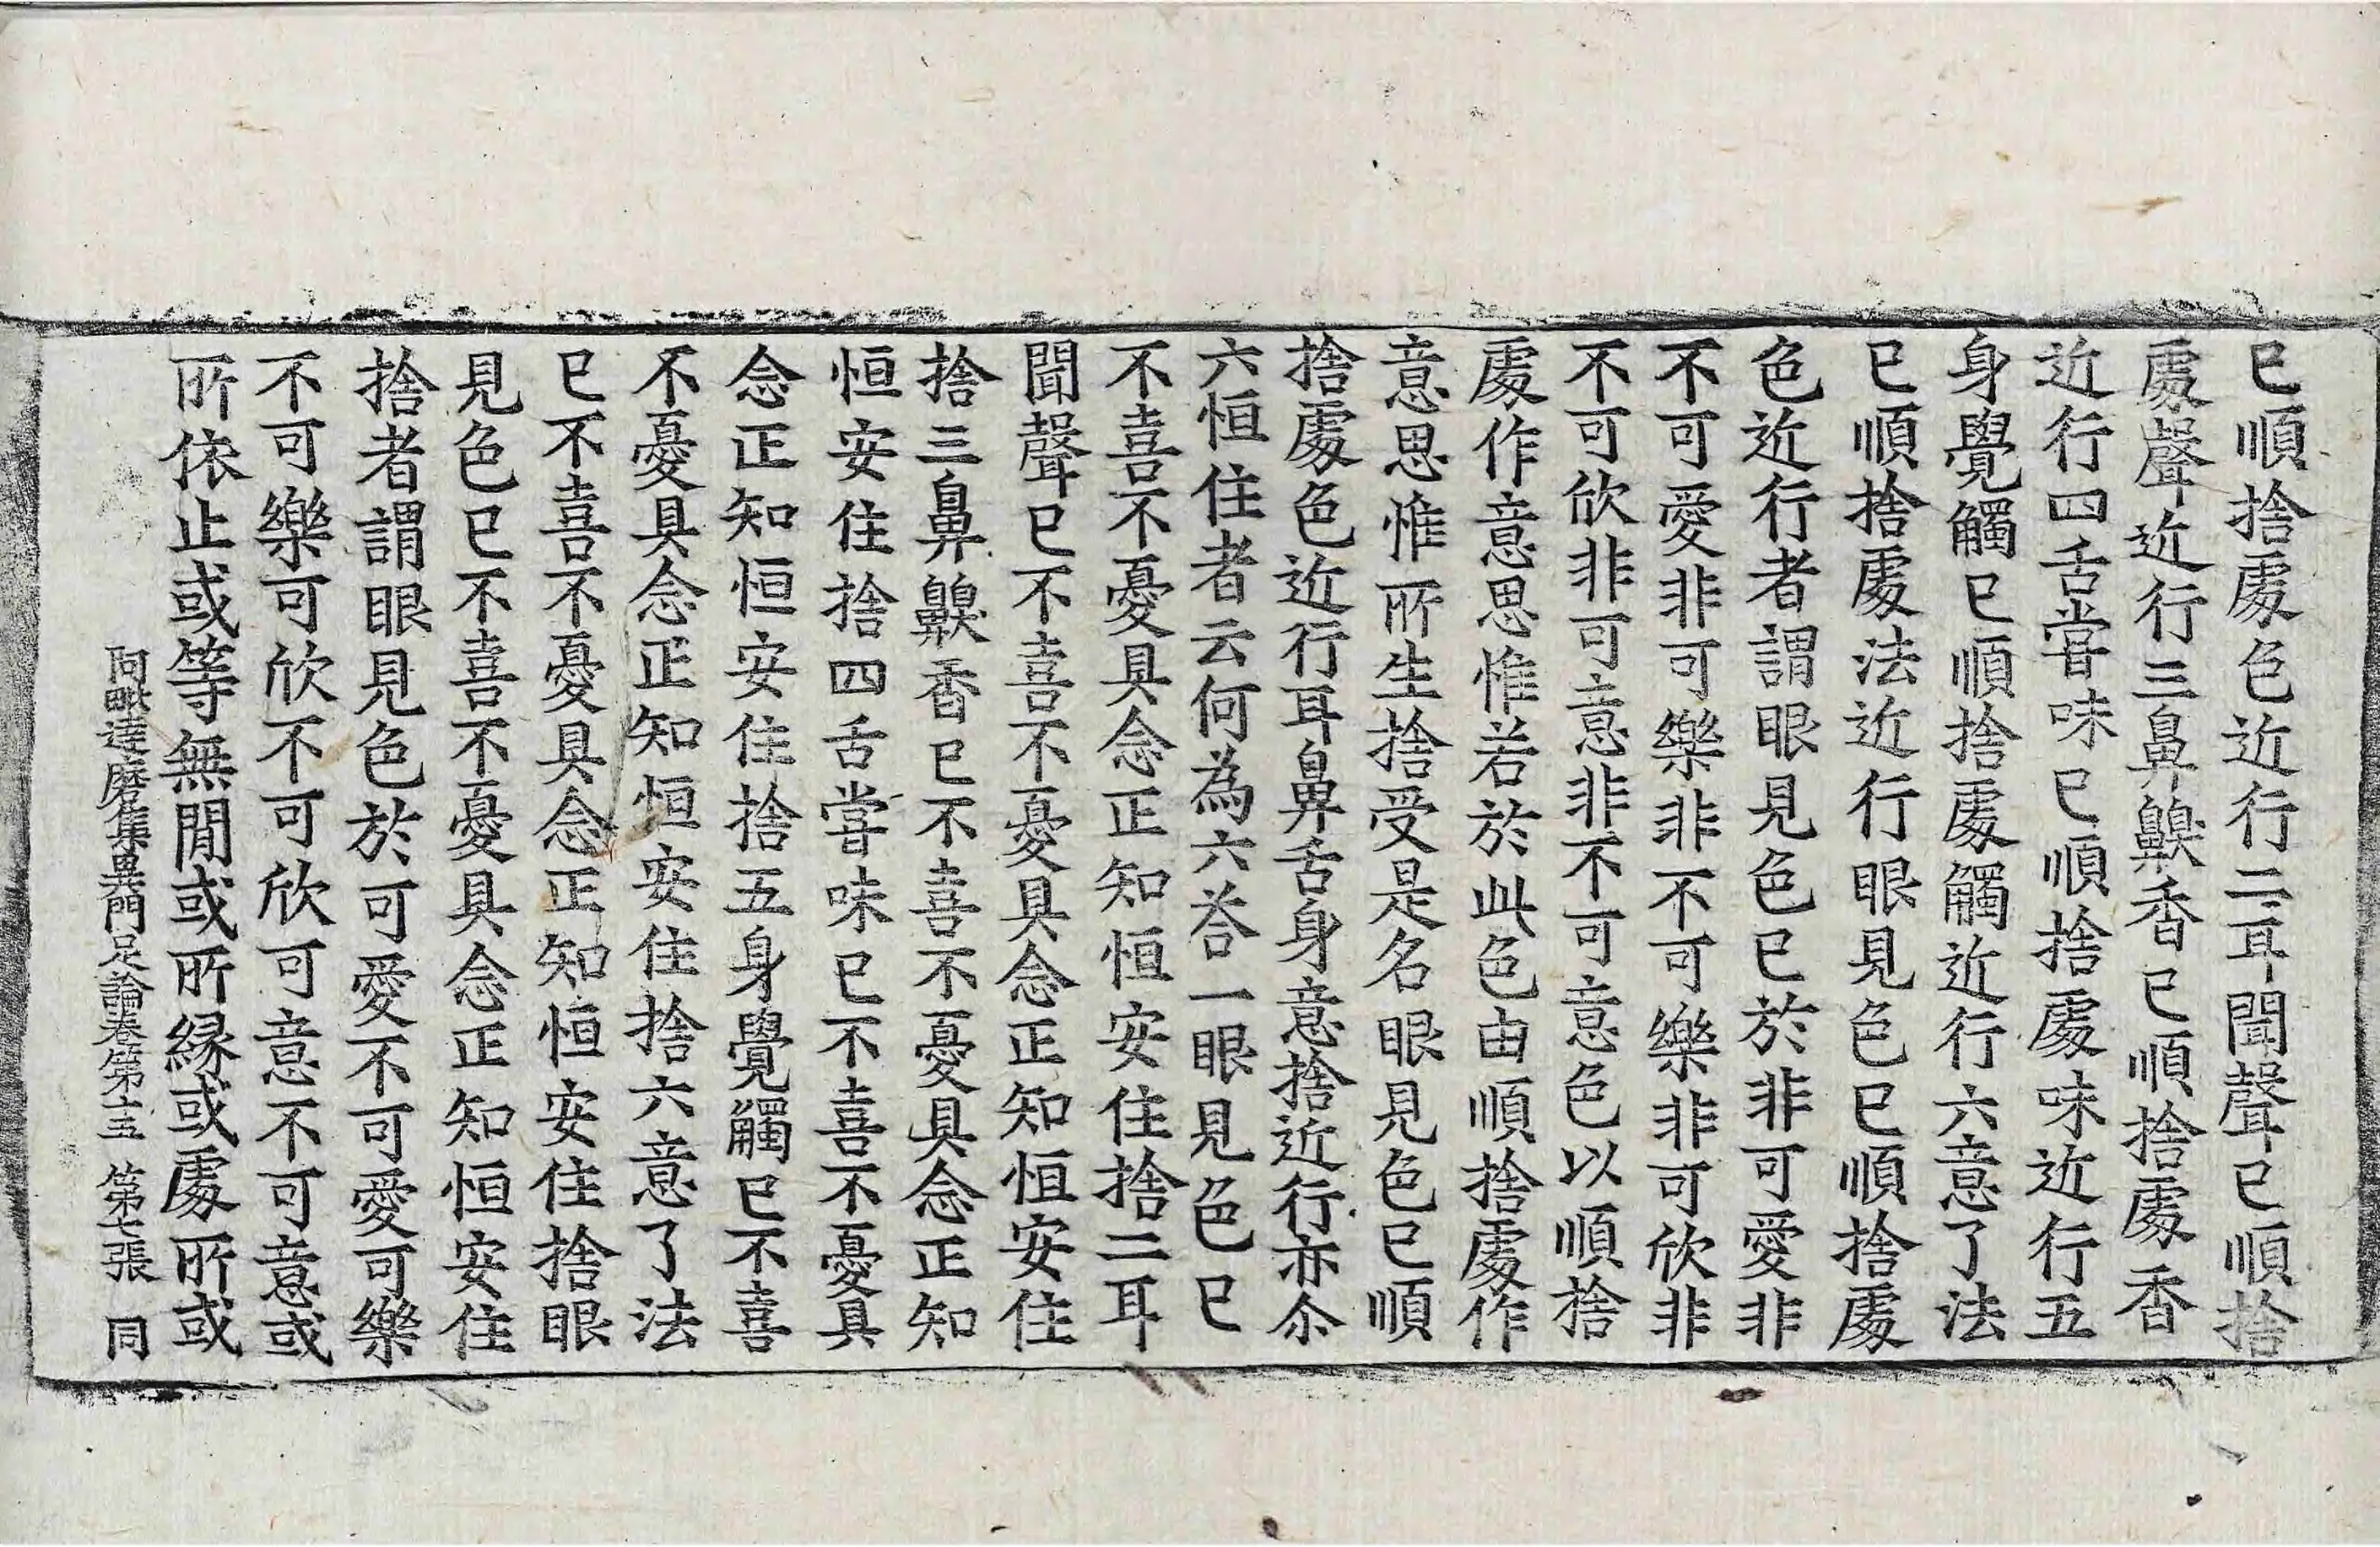 已順捨處色近行二耳聞聲已順捨
處聲近行三鼻齅香已順捨處香
近行四舌甞味已順捨處味近行五
身覺觸已順捨處觸近行六意了法
已順捨處法近行眼見色已順捨處
色近行者謂眼見色已於非可愛非
不可愛非可樂非不可樂非可欣非
不可欣非可意非不可意色以順捨
處作意思惟若於此色由順捨處作
意思惟所生捨受是名眼見色已順
捨處色近行耳鼻舌身意捨近行亦尒
六恒住者云何為六荅一眼見色已
不喜不憂具念正知恒安住捨二耳
聞聲已不喜不憂具念正知恒安住
捨三鼻齅香已不喜不憂具念正知
恒安住捨四舌甞味已不喜不憂具
念正知恒安住捨五身覺觸已不喜
不憂具念正知恒安住捨六意了法
已不喜不憂具念正知恒安住捨眼
見色已不喜不憂具念正知恒安住
捨者謂眼見色於可愛不可愛可樂
不可樂可欣不可欣可意不可意或
所依止或等無閒或所緣或處所或
阿毗達磨集異門足論卷第十五 第七張 同